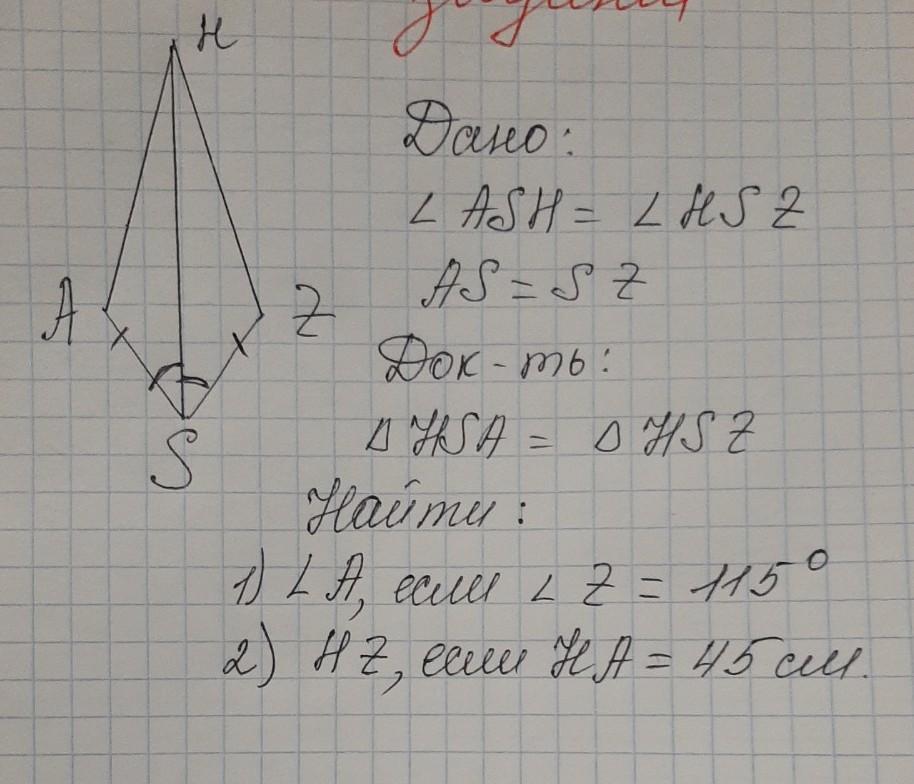 H
Дано:
∠ ASH = ∠ HSZ
AS = SZ
A
Z
Док-ть:
∆ HSA = ∆ HSZ
S
Найти:
1) ∠ A, если ∠ Z = 115°
2) HZ, если HA = 45 см.